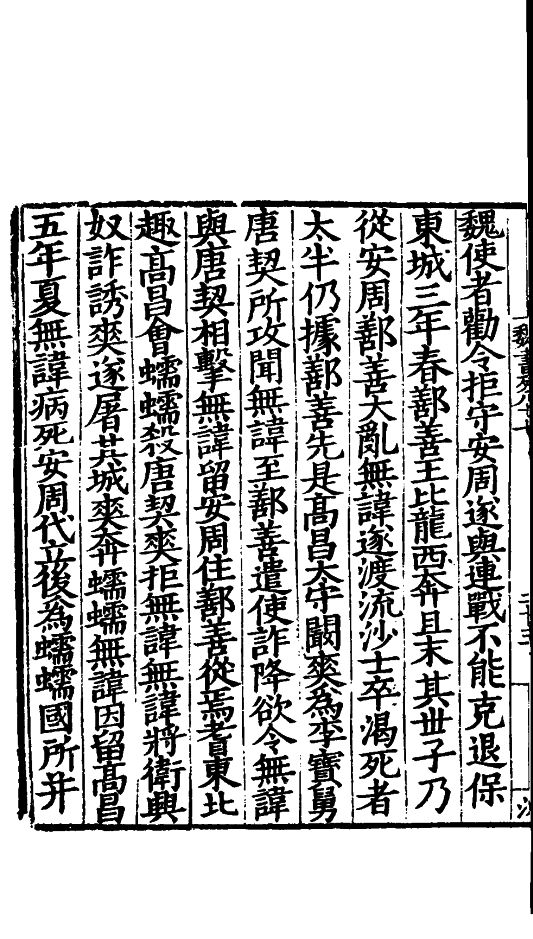 魏使者勸令拒守安周遂與連戰不能克退保
東城三年春鄯善王比龍西奔且末其世子乃
從安周鄯善大亂無諱遂渡流沙士卒渴死者
太半仍據鄯善先是高昌太守闞爽為李寶舅
唐契所攻聞無諱至鄯善遣使詐降欲令無諱
與唐契相擊無諱留安周住鄯善從焉耆東北
趣高昌會蠕蠕殺唐契爽拒無諱無諱將衛興
奴詐誘爽遂屠其城爽奔蠕蠕無諱因留高昌
五年夏無諱病死安周代立後為蠕蠕國所并